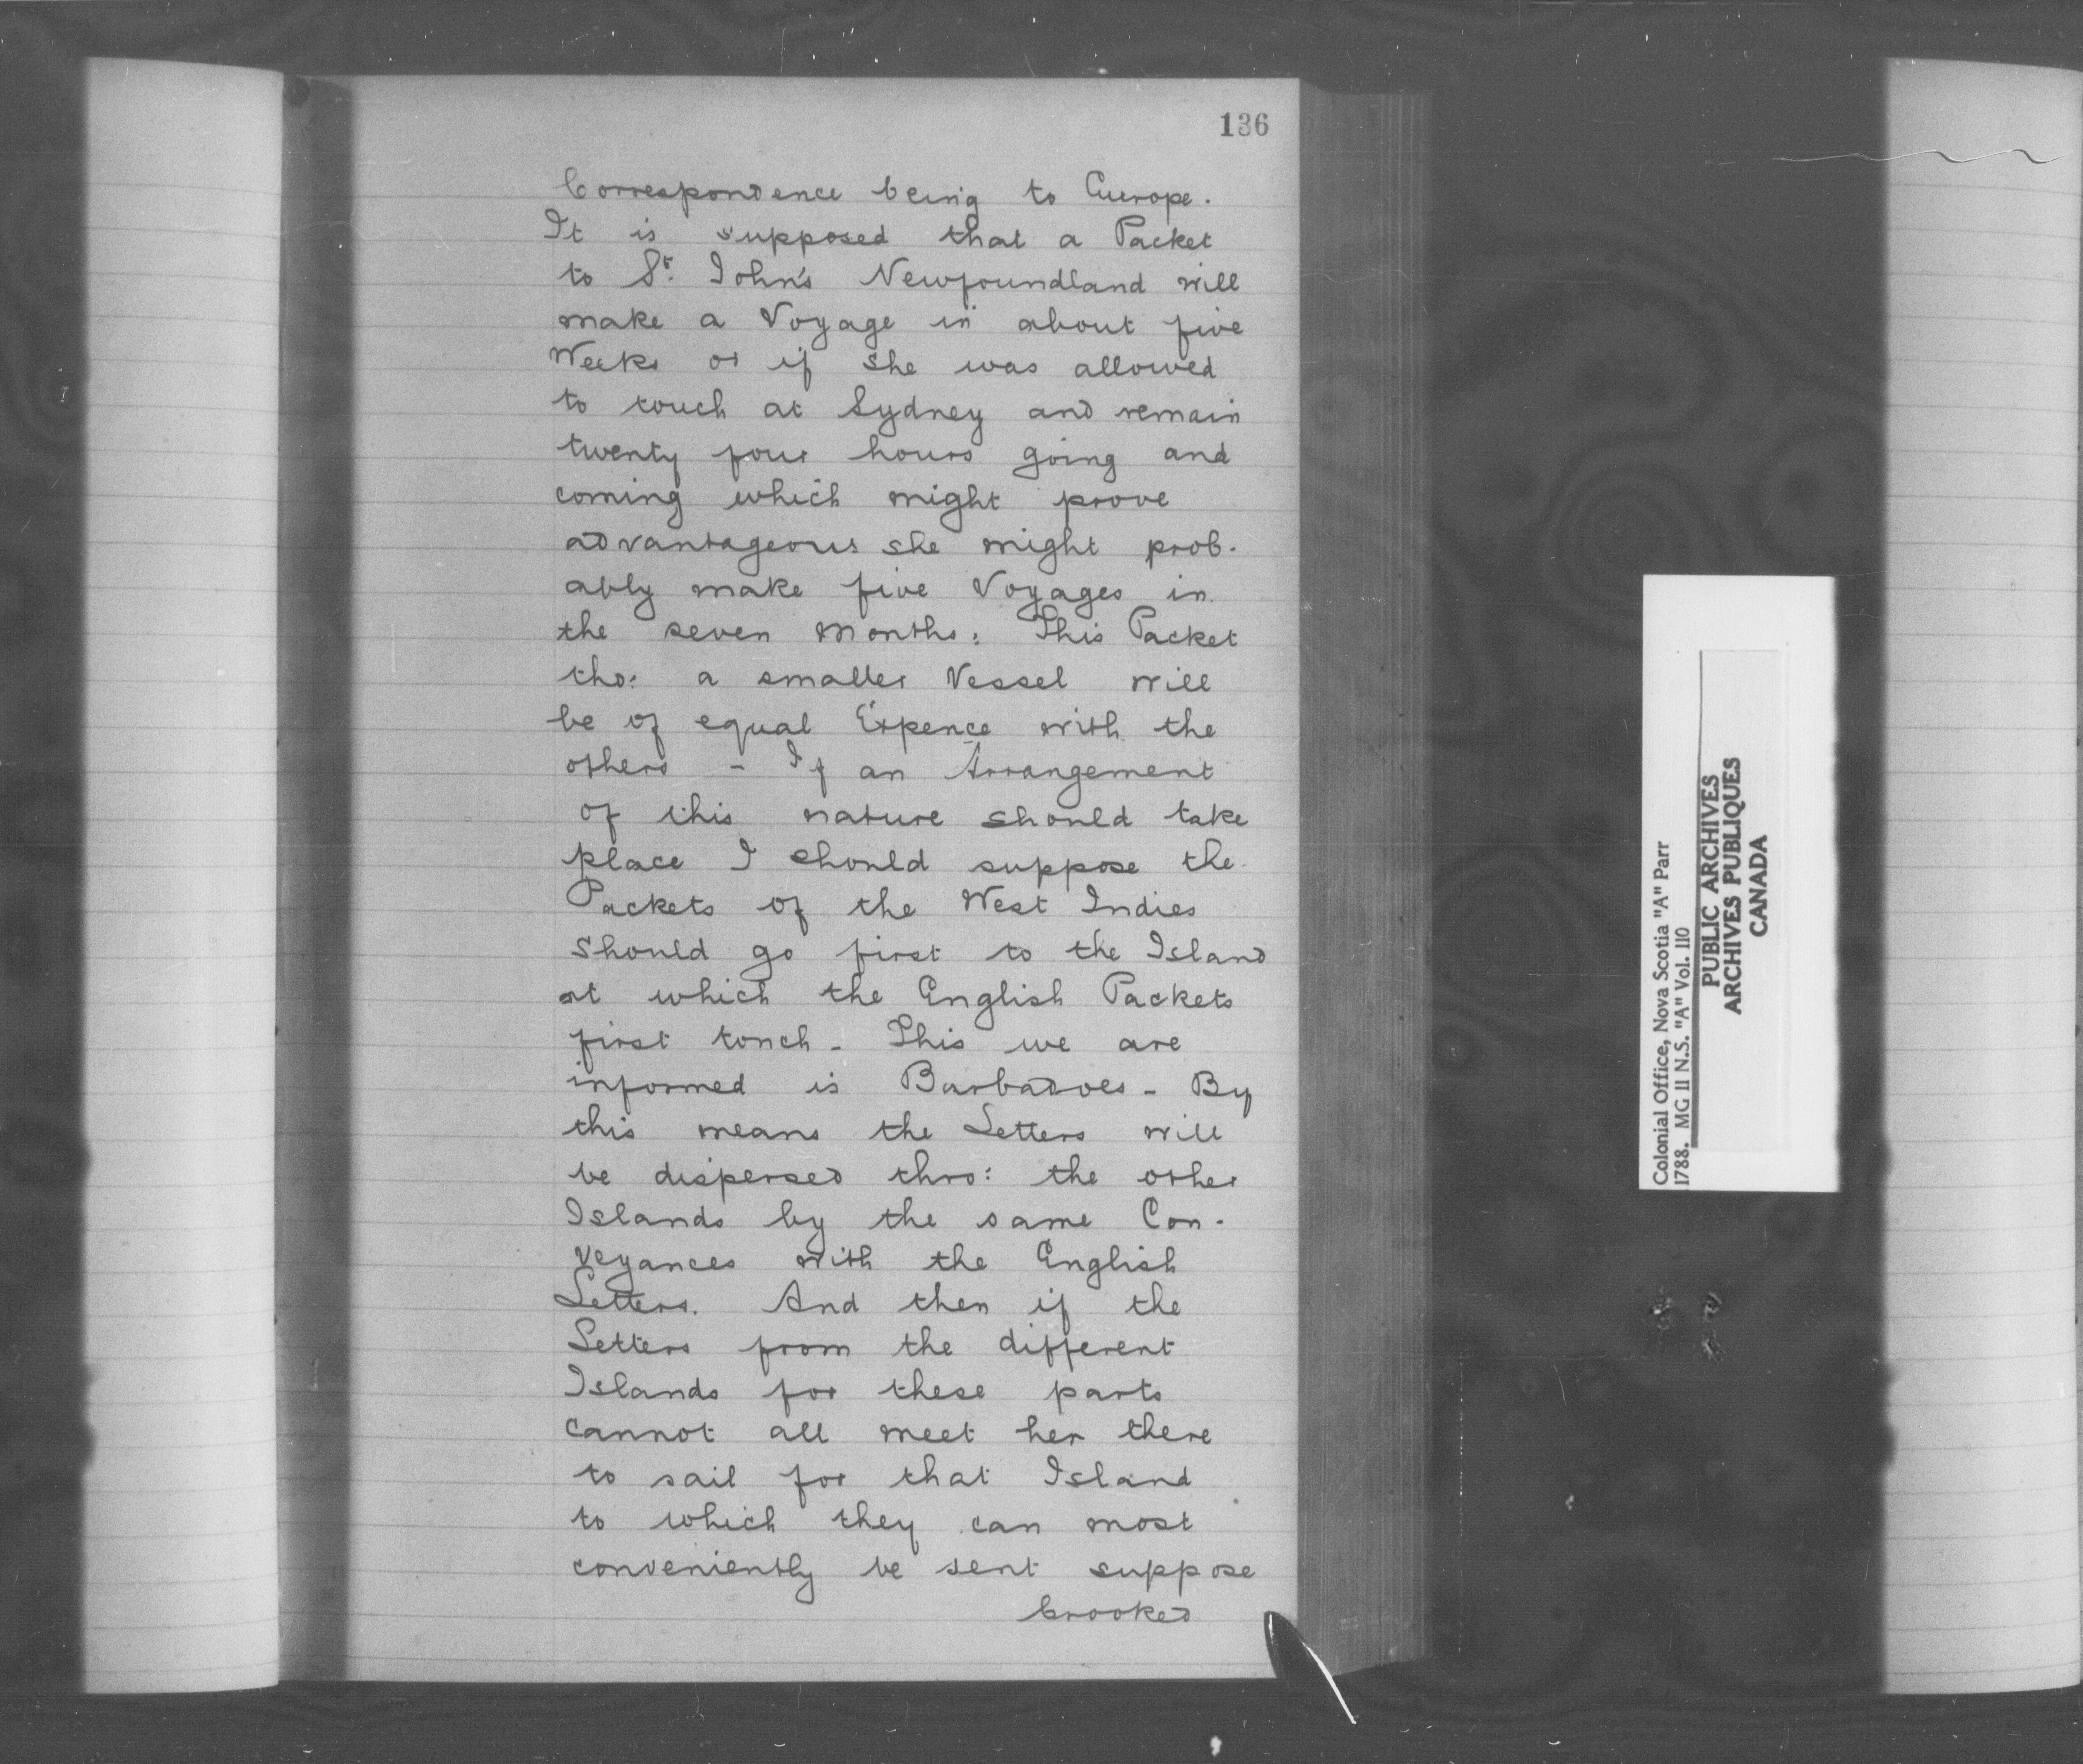 136
Correspondence being to Europe.
It is supposed that a Packet
to St. John's Newfoundland will
make a Voyage in about five
Weeks or if she was allowed
to touch at Sydney and remain
twenty four hours going and
coming which might prove
advantageous she might prob-
ably make five Voyages in
the seven Months: This Packet
tho: a smaller Vessel will
be of equal Expence with the
others - If an Arrangement
of this nature should take
place I should suppose the
Packets of the West Indies
should go first to the Island
at which the English Packets
first touch - This we are
informed is Barbadoes - By
this means the Letters will
be dispersed thro: the other
Islands by the same Con-
veyances with the English
Letters. And then if the
Letters from the different
Islands for these parts
cannot all meet her there
to sail for that Island
to which they can most
conveniently be sent suppose
Crooked
Colonial Office, Nova Scotia "A" Parr
1788. MG 11 N.S. "A" Vol. 110
PUBLIC ARCHIVES
ARCHIVES PUBLIQUES
CANADA